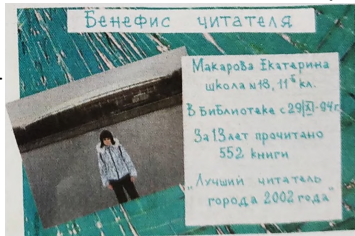 Бенефис читателя
Макарова Екатерина
школа №18, 11 б кл.
В библиотеке с 29/XI-84 г
За 13 лет прочитано
552 книги
"Лучший читатель
города 2002 года"